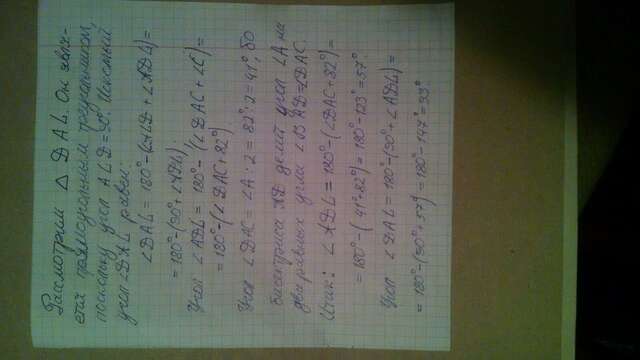 Рассмотрим △ DAL. Он явля-
ется прямоугольным треугольником,
поскольку угол ALD = 90°. Искомый
угол DAL равен:
∠DAL = 180° - (∠ALD + ∠ADL) =
= 180° - (90° + ∠ADL)
Угол ∠ADL = 180° - (∠DAC + ∠C) =
= 180° - (∠DAC + 82°)
Угол ∠DAC = ∠A : 2 = 82° : 2 = 41°, бо
биссектриса AD делит угол ∠A на
два равных угла ∠BAD = ∠DAC.
Итак: ∠ADL = 180° - (∠DAC + 82°) =
= 180° - (41° + 82°) = 180° - 123° = 57°.
Угол ∠DAL = 180° - (90° + ∠ADL) =
= 180° - (90° + 57°) = 180° - 147° = 33°.